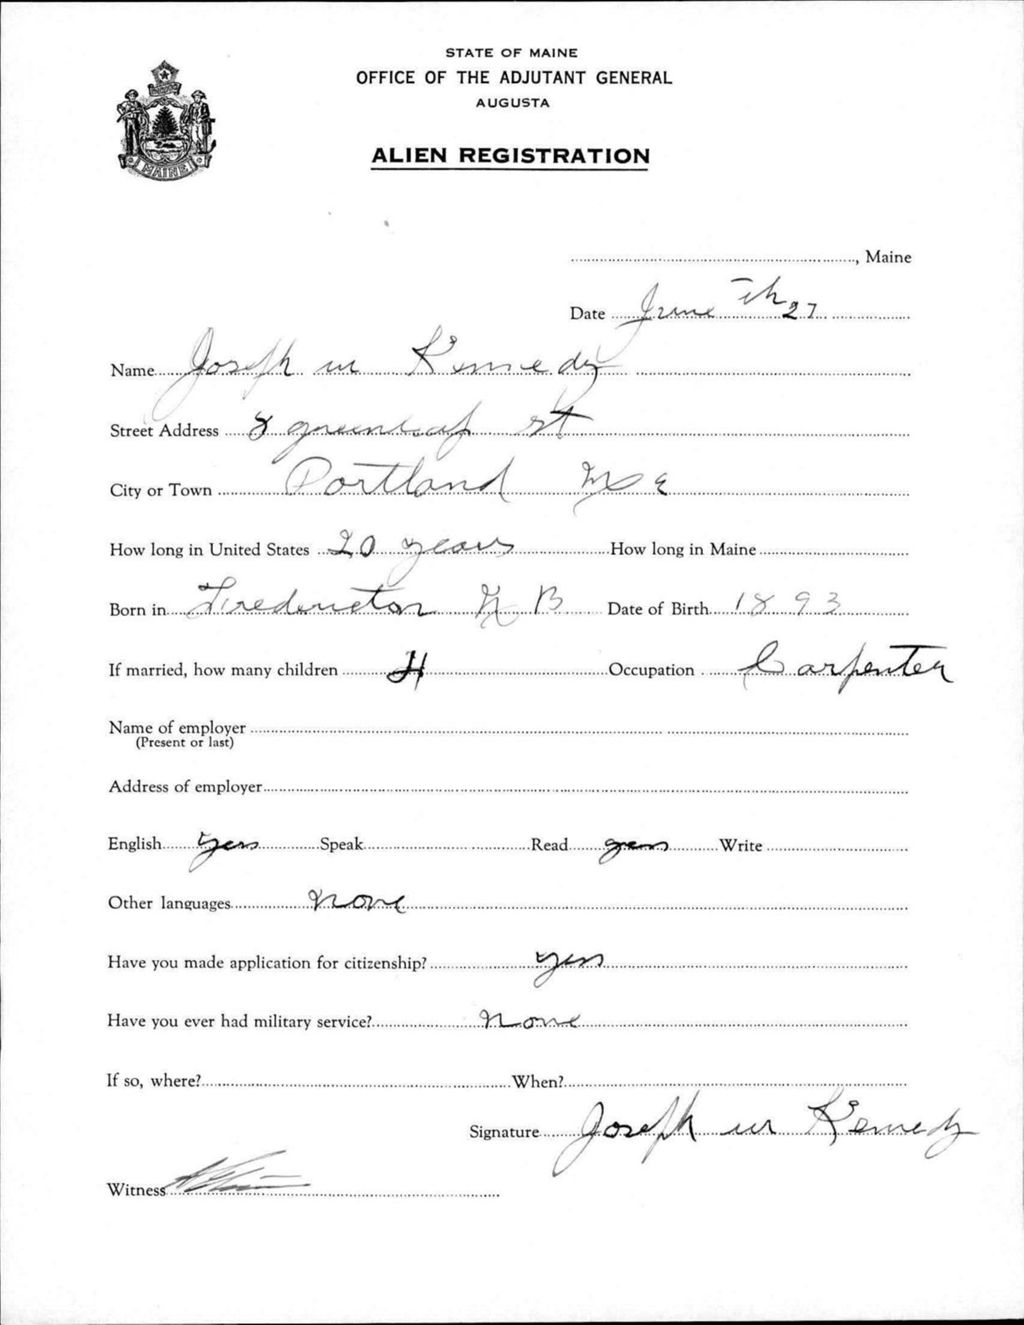 STATE OF MAINE
OFFICE OF THE ADJUTANT GENERAL
AUGUSTA
MAINE
ALIEN REGISTRATION
, Maine
Date June th 27
Name Joseph W Kennedy
Street Address 8 greenleaf st
City or Town Portland Me
How long in United States 20 years How long in Maine
Born in Fredericton N B Date of Birth 1893
If married, how many children 4 Occupation Carpenter
Name of employer
(Present or last)
Address of employer
English yes Speak Read yes Write
Other languages None
Have you made application for citizenship? yes
Have you ever had military service? None
If so, where? When?
Signature Joseph W Kennedy
Witness